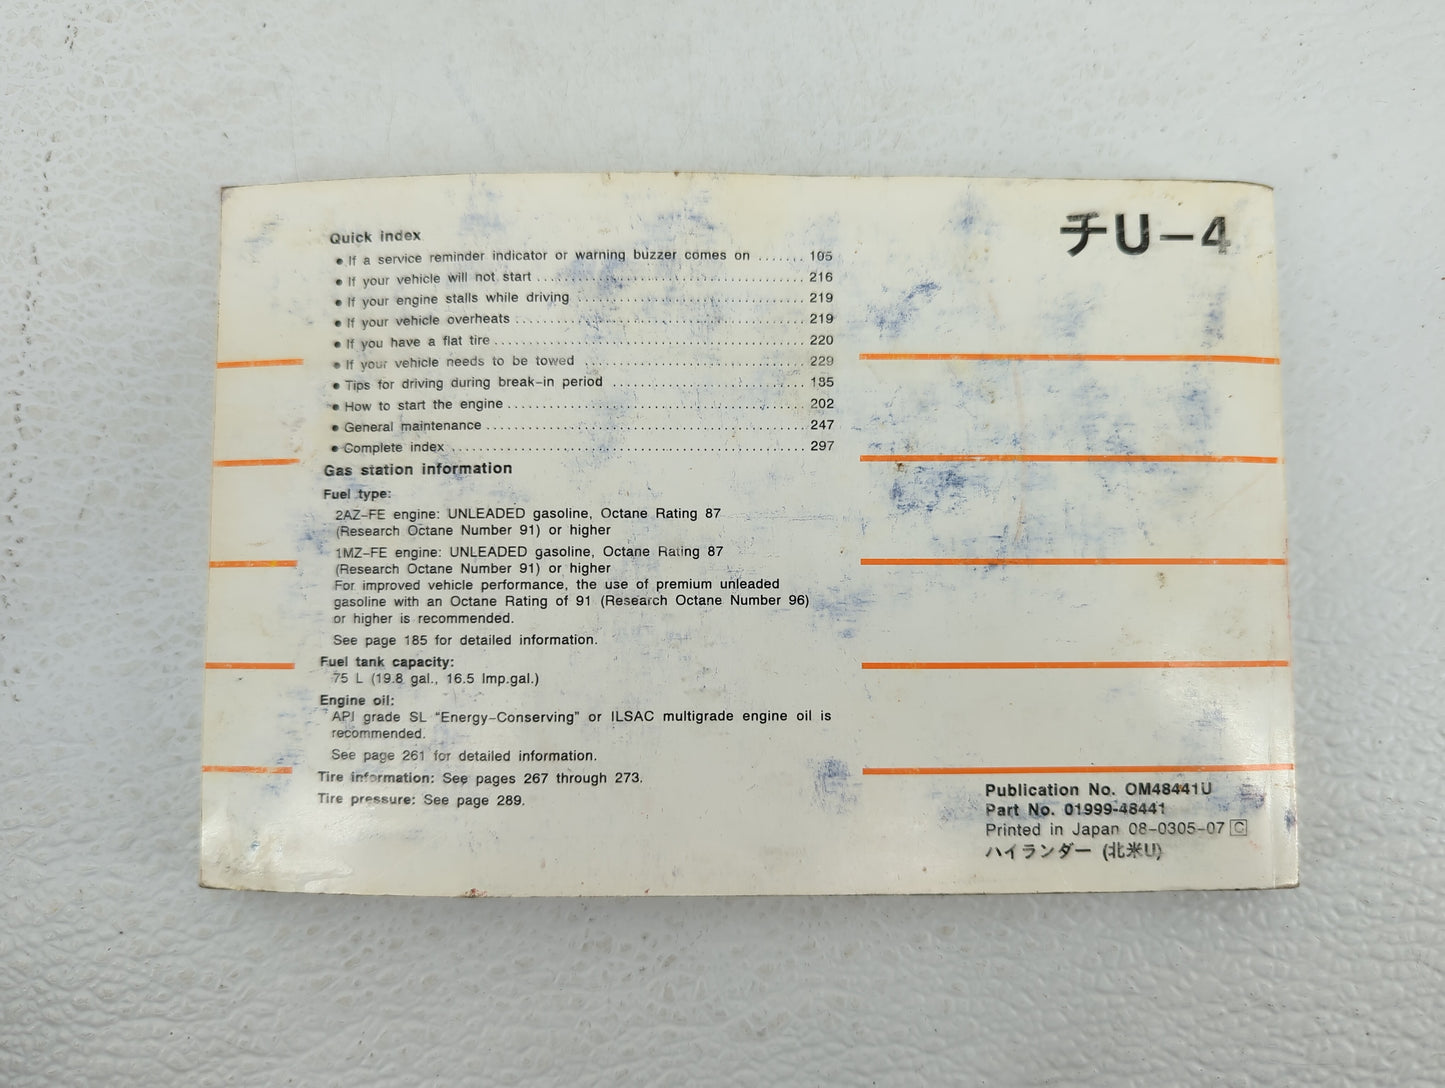 チU-4
Quick index
● If a service reminder indicator or warning buzzer comes on ....... 105
● If your vehicle will not start ........................................ 216
● If your engine stalls while driving .................................. 219
● If your vehicle overheats ............................................ 219
● If you have a flat tire ............................................... 220
● If your vehicle needs to be towed ................................. 229
● Tips for driving during break-in period ............................ 185
● How to start the engine ............................................. 202
● General maintenance ................................................ 247
● Complete index ...................................................... 297
Gas station information
Fuel type:
2AZ-FE engine: UNLEADED gasoline, Octane Rating 87
(Research Octane Number 91) or higher
1MZ-FE engine: UNLEADED gasoline, Octane Rating 87
(Research Octane Number 91) or higher
For improved vehicle performance, the use of premium unleaded
gasoline with an Octane Rating of 91 (Research Octane Number 96)
or higher is recommended.
See page 185 for detailed information.
Fuel tank capacity:
75 L (19.8 gal., 16.5 Imp.gal.)
Engine oil:
API grade SL “Energy-Conserving” or ILSAC multigrade engine oil is
recommended.
See page 261 for detailed information.
Tire information: See pages 267 through 273.
Tire pressure: See page 289.
Publication No. OM48441U
Part No. 01999-48441
Printed in Japan 08-0305-07 C
ハイランダー (北米U)